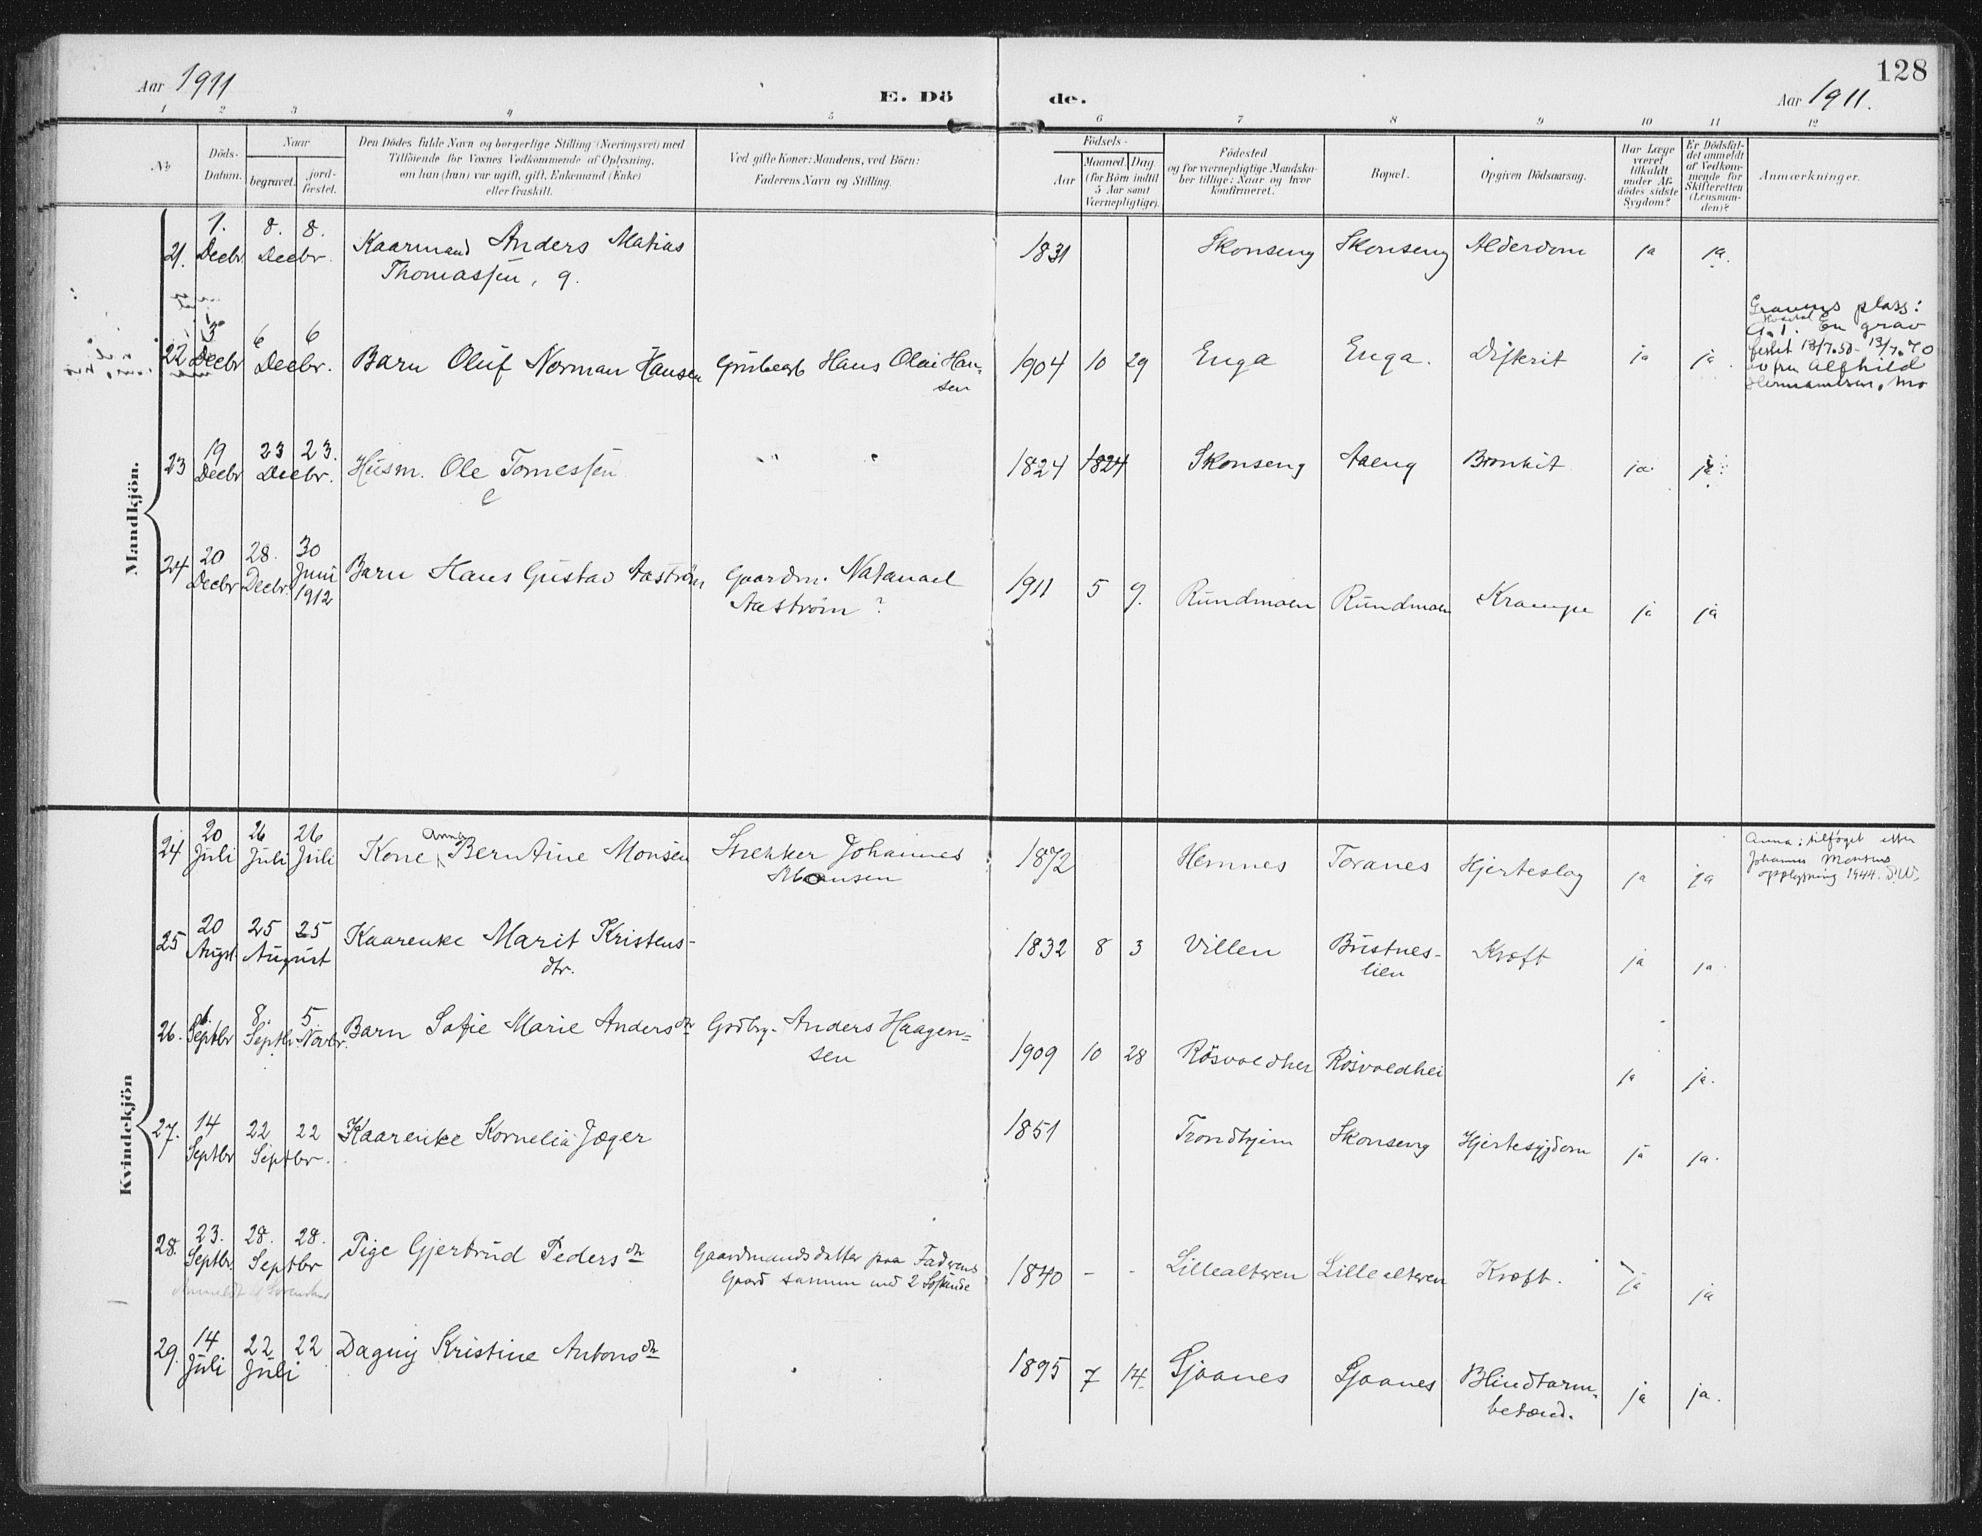 128
Aar 1911
E. Dö
de.
Aar 1911.
1 2 3 4 5 6 7 8 9 10 11 12
No
Döds-
Datum.
Naar
begravet.
jord-
fæstet.
Den Dödes fulde Navn og borgerlige Stilling (Næringsvei) med
Tilföiende for Voxnes Vedkommende af Oplysning,
om han (hun) var ugift, gift, Enkemand (Enke)
eller fraskilt.
Ved gifte Koner: Mandens, ved Börn:
Faderens Navn og Stilling.
Födsels-
Aar
Maaned. Dag.
(for Börn indtil
5 Aar samt
Værnepligtige).
Födested
og for værnepligtige Mandskaber
tillige: Naar og hvor
konfirmeret.
Bopæl.
Opgiven Dödsaarsag.
Har Læge
været
tilkaldt
under Af-
dödes sidste
Sygdom?
Er Dödsfal-
det anmeldt
af Vedkom-
mende for
Skifteretten
(Lensman-
den)?
Anmærkninger.
Mandkjön.
21. Decbr 8. 8. Decbr. Kaarmand Anders Matias
Thomassen, g.
1831 Skonseng Skonseng Alderdom ja ja.
22 3 Decbr 6 6 Decbr. Barn Oluf Norman Hansen Hans Olai Han-
sen
1904 10 29 Enga Enga. Difterit ja ja
Gravens plass:
En grav
festet
fru Alfhild
Hermansen, Mo
23 19 Decbr 23 23. Decbr. Husm. Ole Tomessen
e
1824 1824 Skonseng Aaeng Bronkit ja ja
24 20 Decbr 28. Decbr. 30 Juni 1912 Barn Hans Gustav Aaström Gaardm. Natanael
Aaström ?
1911 5 9. Rundmoen Rundmoen Krampe ja ja
Kvindekjön
24 20 Juli 26 Juli 26 Juli Kone Anna Berntine Monsen Johannes
Monsen
1872 Hemnes Toranes Hjerteslag ja ja
Anna: tilføget etter
Johannes Monsens
opplysning 1944.
25 20 Augst 25 25 August Kaarenke Marit Kristens-
dtr.
1832 8 3 Villen Bustnes-
lien
Kræft ja ja.
26. 6. Septbr 8. Septbr 5. Novbr. Barn Sofie Marie Andersdtr Anders Haagen-
sen
1909 10 28 Rösvoldhei Rösvoldhei ja ja.
27. 14 Septbr 22 22 Septbr. Kaarenke Kornelia Jæger
1851 Trondhjem Skonseng Hjertesygdom ja ja.
28. 23. Septbr 28. 28. Septbr Pige Gjertrud Pedersdtr Gaardmandsdatter paa Faderens
Gaard sammen med 2 Söskende
1840 - - Lillealteren Lillealteren Kræft. ja ja
29. 14 Juli 22 22 Juli Dagny Kristine Antonsdtr
1895 7 14. Sjaanes Sjaanes Blindtarm-
betænd.
ja ja.